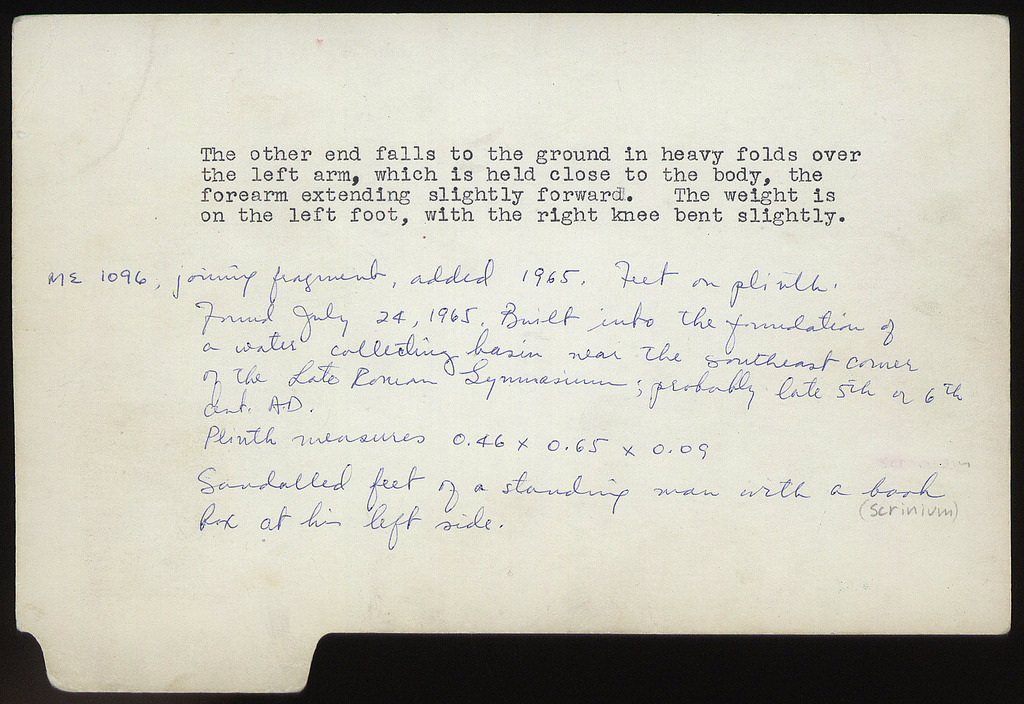 The other end falls to the ground in heavy folds over
the left arm, which is held close to the body, the
forearm extending slightly forward.   The weight is
on the left foot, with the right knee bent slightly.
ΜΣ 1096, joining fragment, added 1965. Feet on plinth.
Found July 24, 1965. Built into the foundation of
a water collecting basin near the southeast corner
of the Late Roman Gymnasium; probably late 5th or 6th
cent. A.D.
Plinth measures 0.46 x 0.65 x 0.09
Sandalled feet of a standing man with a book
(scrinium)
box at his left side.